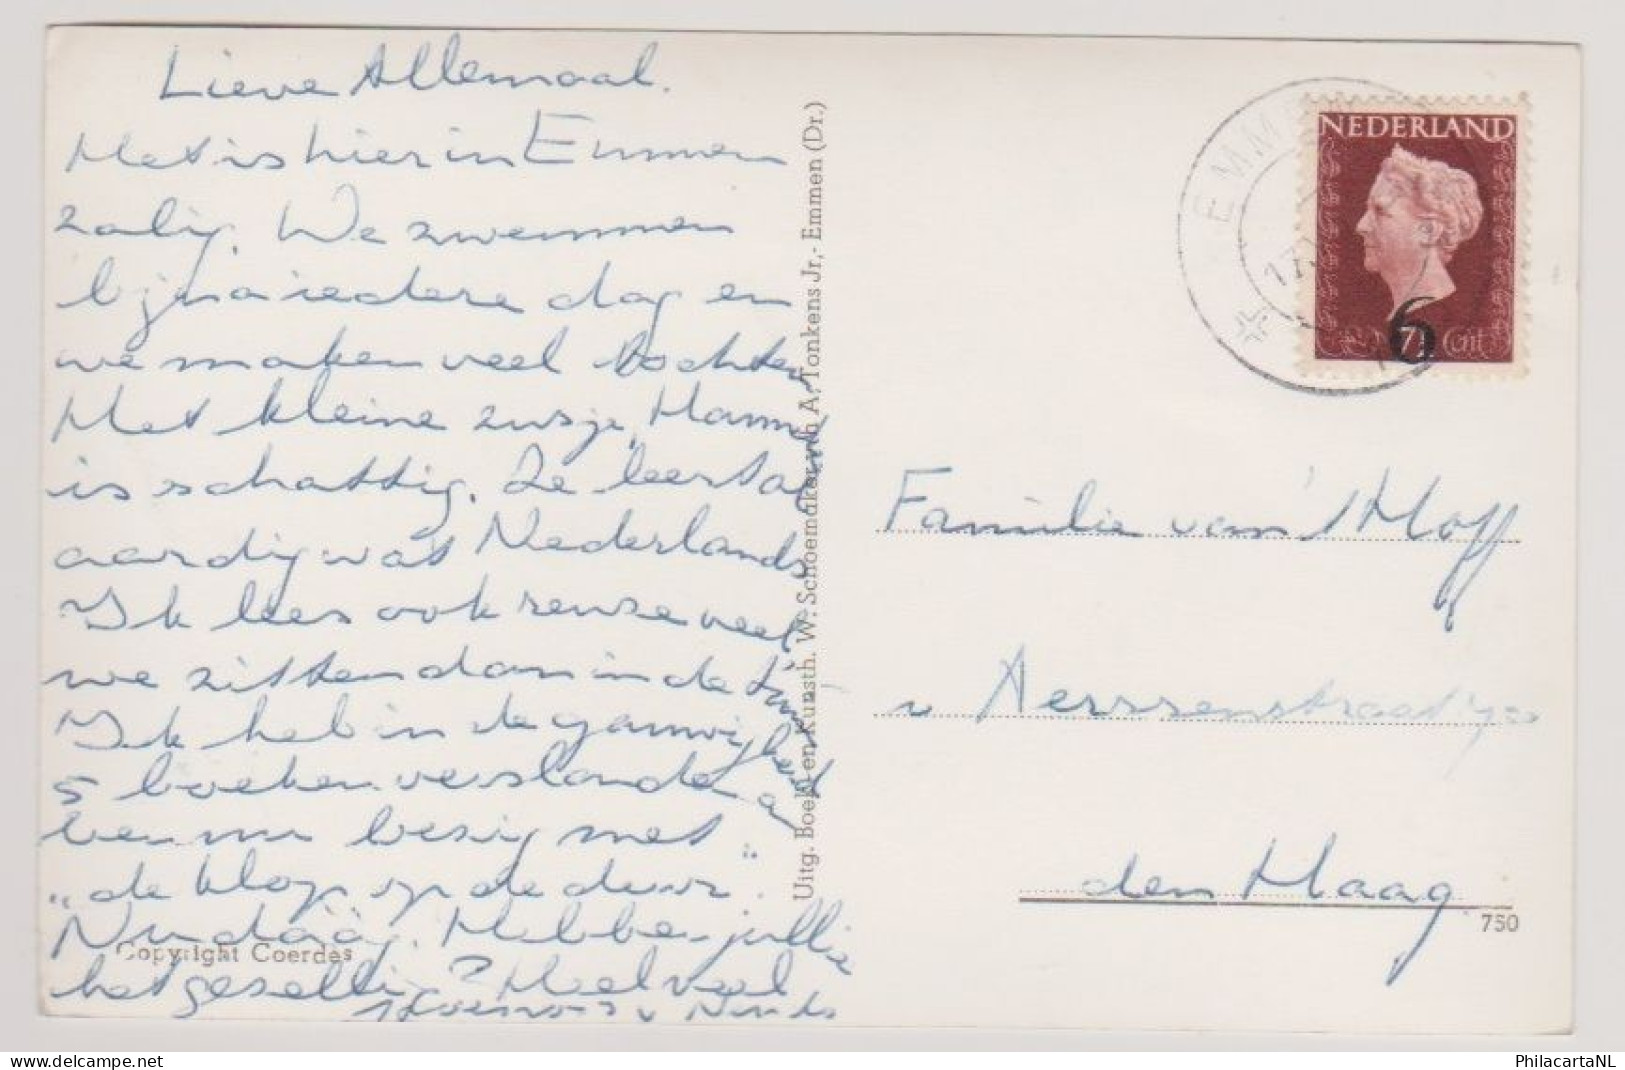 Lieve Allemaal.
Het is hier in Emmen
zalig. We zwemmen
bijna iedere dag en
we maken veel tochten
Het kleine zusje,
is schattig. Ze leert al
aardig wat Nederlands
Ik lees ook reuze veel
we zitten dan in de tuin
Ik heb in de gauwigheid
5 boeken verslonden
ben nu bezig met
"de klop op de deur".
Nu dááág. Hebben jullie
het gezellig? Heel veel
v
Uitg. Boekh. en Kunsth. W. Schoemaker v/h A. Tonkens Jr,- Emmen (Dr.)
Copyright Coerdes
EMM
17
NEDERLAND
6
7½ Cent
Familie van 't Hoff
v Aerssenstraat
den Haag
750
PhilacartaNL
www.delcampe.net